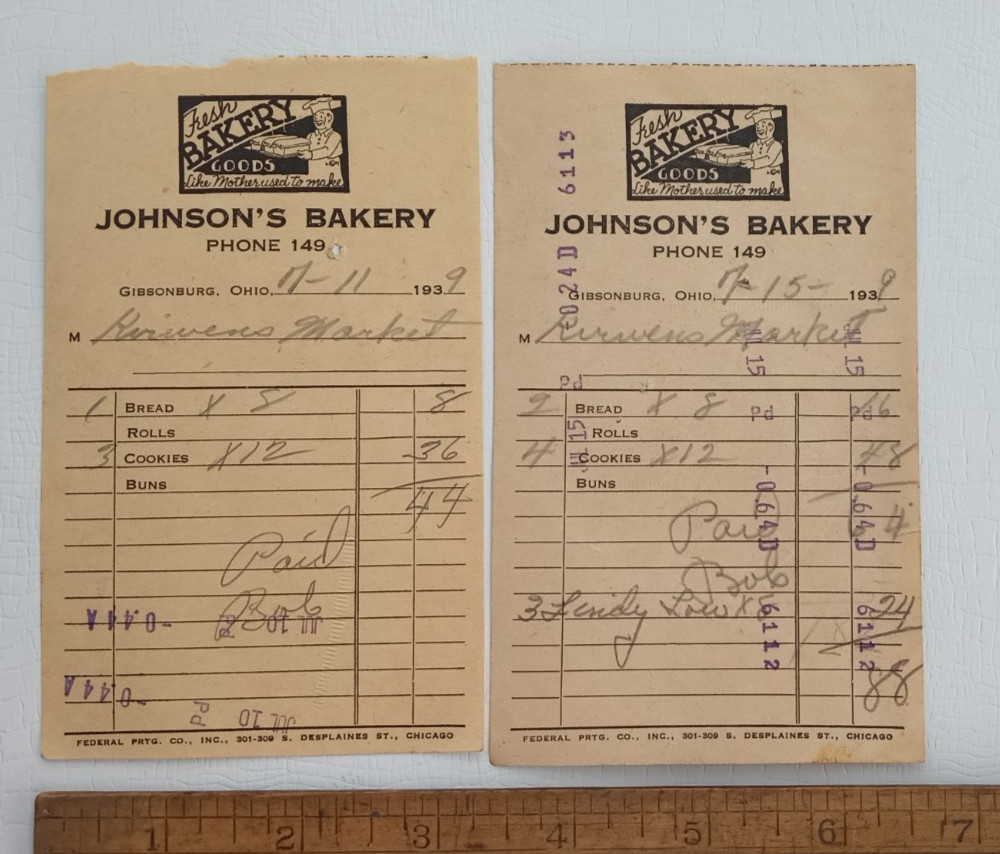 Fresh
BAKERY
GOODS
Like Mother used to make
JOHNSON'S BAKERY
PHONE 149
GIBSONBURG, OHIO, 7-11 1939
M Kirwens Market
1 BREAD X 8 8
ROLLS
3 COOKIES X12 36
BUNS
44
Paid
Bob
-0.44A JUL 10 Pd
-0.44A JUL 10 Pd
FEDERAL PRTG. CO., INC., 301-309 S. DESPLAINES ST., CHICAGO
Fresh
BAKERY
GOODS
Like Mother used to make
JOHNSON'S BAKERY
PHONE 149
GIBSONBURG, OHIO, 7-15- 1939
M Kirwens Market
2 BREAD X 8 16
ROLLS
4 COOKIES X12 48
BUNS
64
Paid
Bob
3 Lindy 24
88
Pd JUL 15 -0.24D 6113
JUL 15 Pd -0.64D 6112
JUL 15 Pd -0.64D 6112
FEDERAL PRTG. CO., INC., 301-309 S. DESPLAINES ST., CHICAGO
1 2 3 4 5 6 7